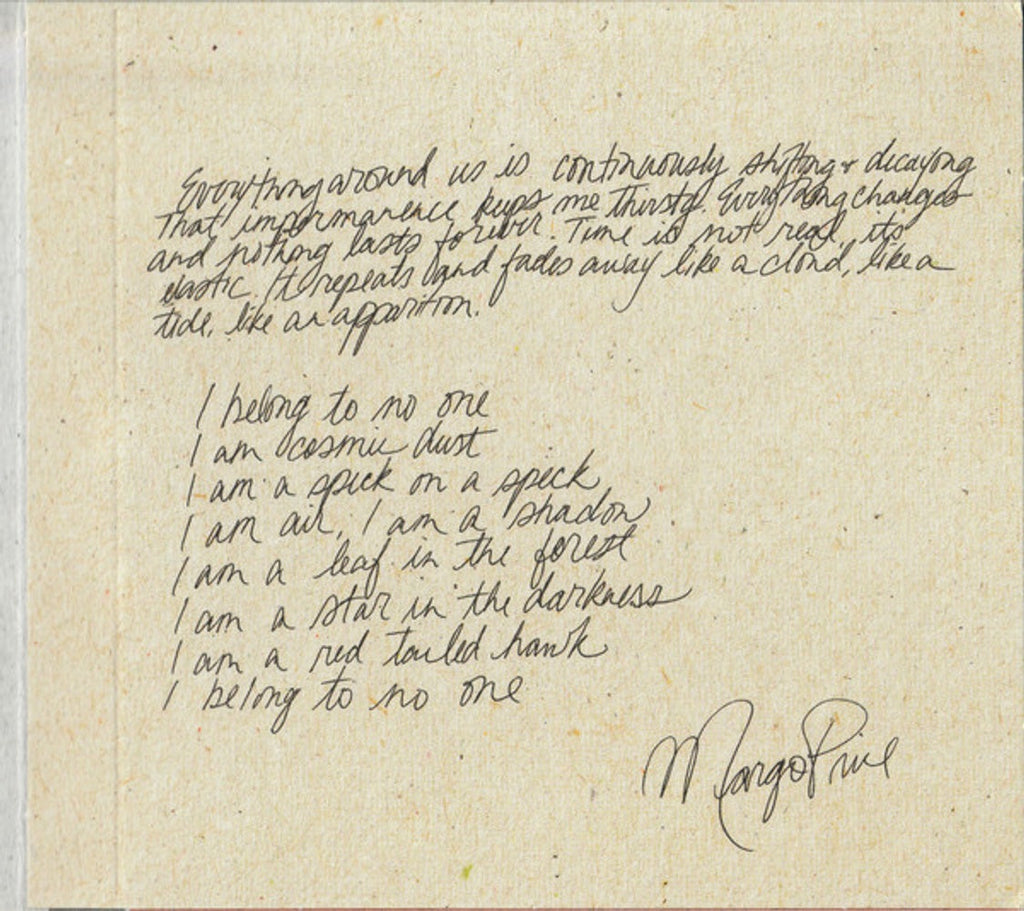 Everything around us is continuously shifting + decaying
That impermanence keeps me thirsty. Everything changes
and nothing lasts forever. Time is not real, its
elastic. It repeats and fades away like a cloud, like a
tide, like an apparition.
I belong to no one
I am cosmic dust
I am a speck on a speck
I am air, I am a shadow
I am a leaf in the forest
I am a star in the darkness
I am a red tailed hawk
I belong to no one
Margo Price